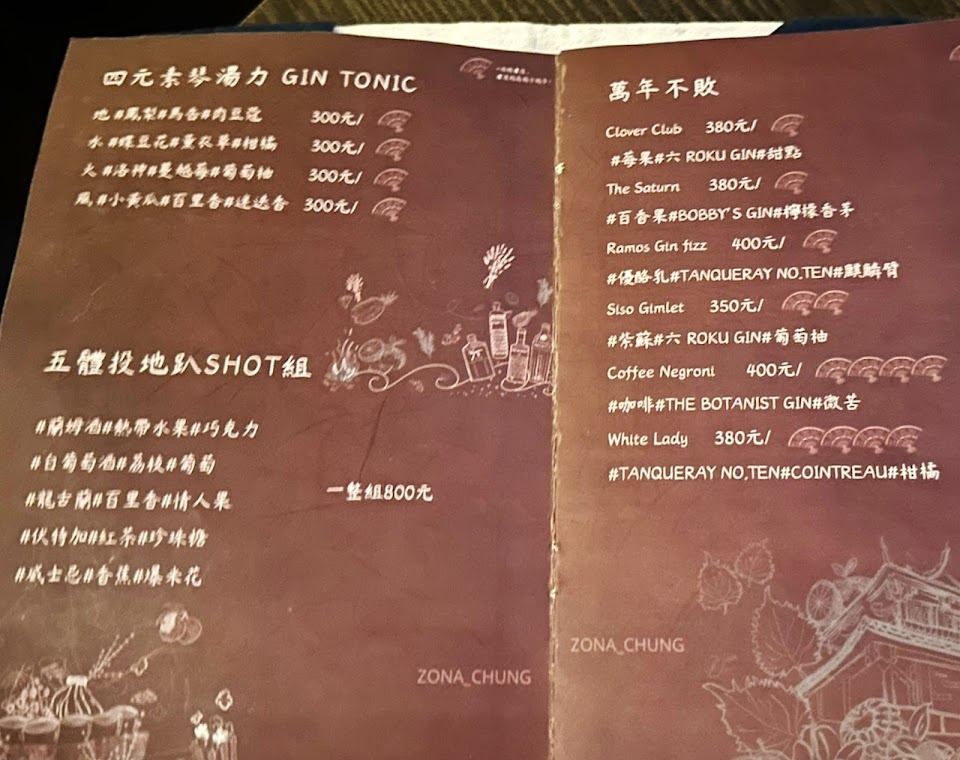 四元素琴湯力 GIN TONIC
地 #鳳梨#馬告#肉豆蔻 300元/
水 #蝶豆花#薰衣草#柑橘 300元/
火 #洛神#蔓越莓#葡萄柚 300元/
風 #小黃瓜#百里香#迷迭香 300元/
五體投地趴SHOT組
#蘭姆酒#熱帶水果#巧克力
#白葡萄酒#荔枝#葡萄
#龍舌蘭#百里香#情人果
#伏特加#紅茶#珍珠糖
#威士忌#香蕉#爆米花
一整組800元
ZONA_CHUNG
萬年不敗
Clover Club 380元/
#莓果#六 ROKU GIN#甜點
The Saturn 380元/
#百香果#BOBBY'S GIN#檸檬香茅
Ramos Gin fizz 400元/
#優酪乳#TANQUERAY NO.TEN#麒麟臂
Siso Gimlet 350元/
#紫蘇#六 ROKU GIN#葡萄柚
Coffee Negroni 400元/
#咖啡#THE BOTANIST GIN#微苦
White Lady 380元/
#TANQUERAY NO.TEN#COINTREAU#柑橘
ZONA_CHUNG